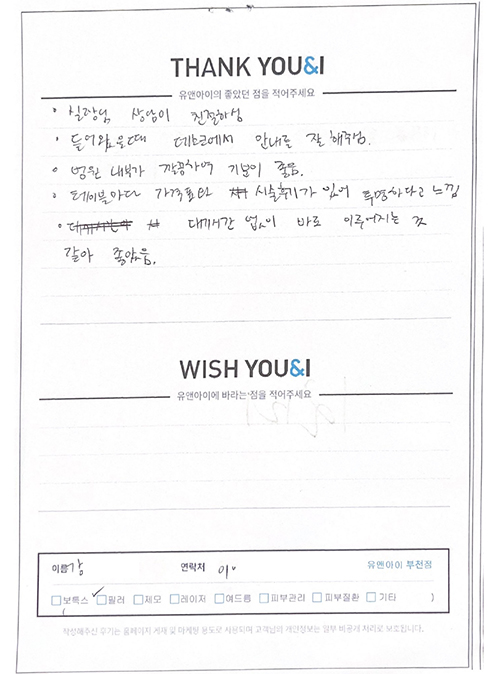 THANK YOU&I
유앤아이의 좋았던 점을 적어주세요
• 실장님 상담이 친절하심
• 들어왔을때 데스크에서 안내를 잘 해주심.
• 병원 내부가 깔끔하여 기분이 좋음.
• 테이블마다 가격표와 시술후기가 있어 투명하다고 느낌
• 대기시간 없이 바로 이루어지는 것
같아 좋았음.
WISH YOU&I
유앤아이에 바라는 점을 적어주세요
이름 강 연락처 01 유앤아이 부천점
보톡스 필러 제모 레이저 여드름 피부관리 피부질환 기타 ( )
작성해주신 후기는 홈페이지 게재 및 마케팅 용도로 사용되며 고객님의 개인정보는 일부 비공개 처리로 보호됩니다.